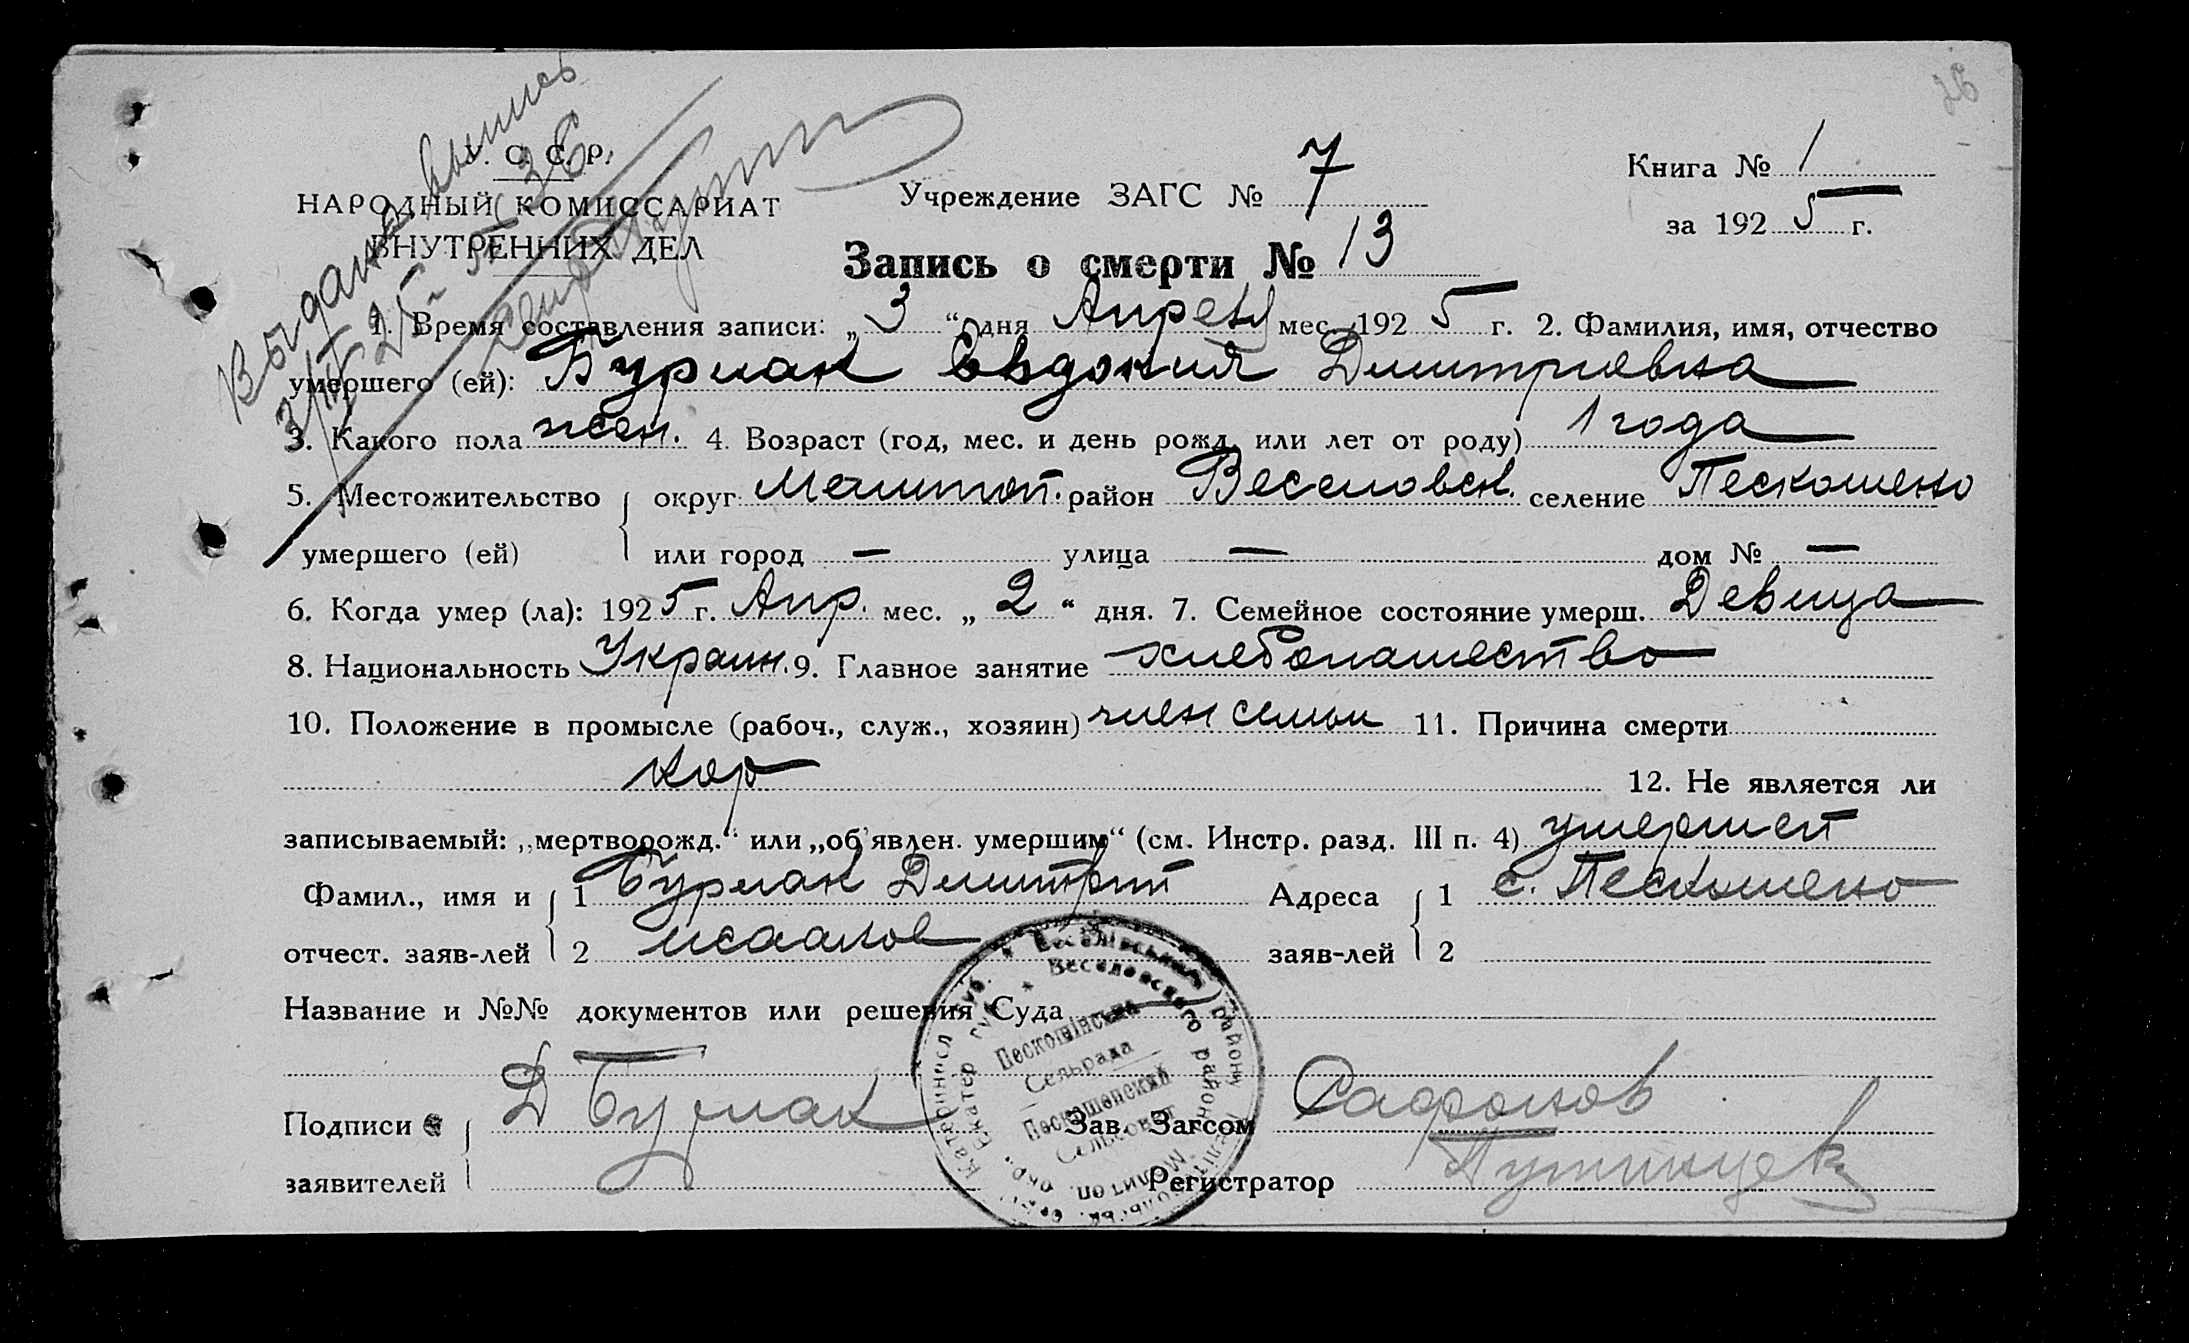 26
Выдана выпись
3/IV 25 г № 36
С. С. Р.
НАРОДНЫЙ КОМИССАРИАТ
ВНУТРЕННИХ ДЕЛ
Учреждение ЗАГС № 7
Книга № 1
за 1925 г.
Запись о смерти № 13
1. Время составления записи: „3“ дня Апреля мес. 1925 г. 2. Фамилия, имя, отчество
умершего (ей): Бурлак Евдокия Димитриевна
3. Какого пола жен. 4. Возраст (год, мес. и день рожд. или лет от роду) 1 года
5. Местожительство округ Мелитоп. район Веселовск. селение Пескошено
умершего (ей) или город — улица — дом № —
6. Когда умер (ла): 1925 г. Апр. мес. „2“ дня. 7. Семейное состояние умерш. Девица
8. Национальность Украин. 9. Главное занятие хлебопашество
10. Положение в промысле (рабоч., служ., хозяин) член семьи 11. Причина смерти
кор 12. Не является ли
записываемый: „мертворожд.“ или „об'явлен. умершим“ (см. Инстр. разд. III п. 4) умершей
Фамил., имя и 1 Бурлак Димитрий Адреса 1 с. Пескошено
отчест. заяв-лей 2 заяв-лей 2
Название и №№ документов или решения Суда
Подписи Д Бурлак Зав. Загсом Сафонов
заявителей Регистратор
Веселовского район
Пескошінська
Сельрада
Пескошенский
Сельсовет